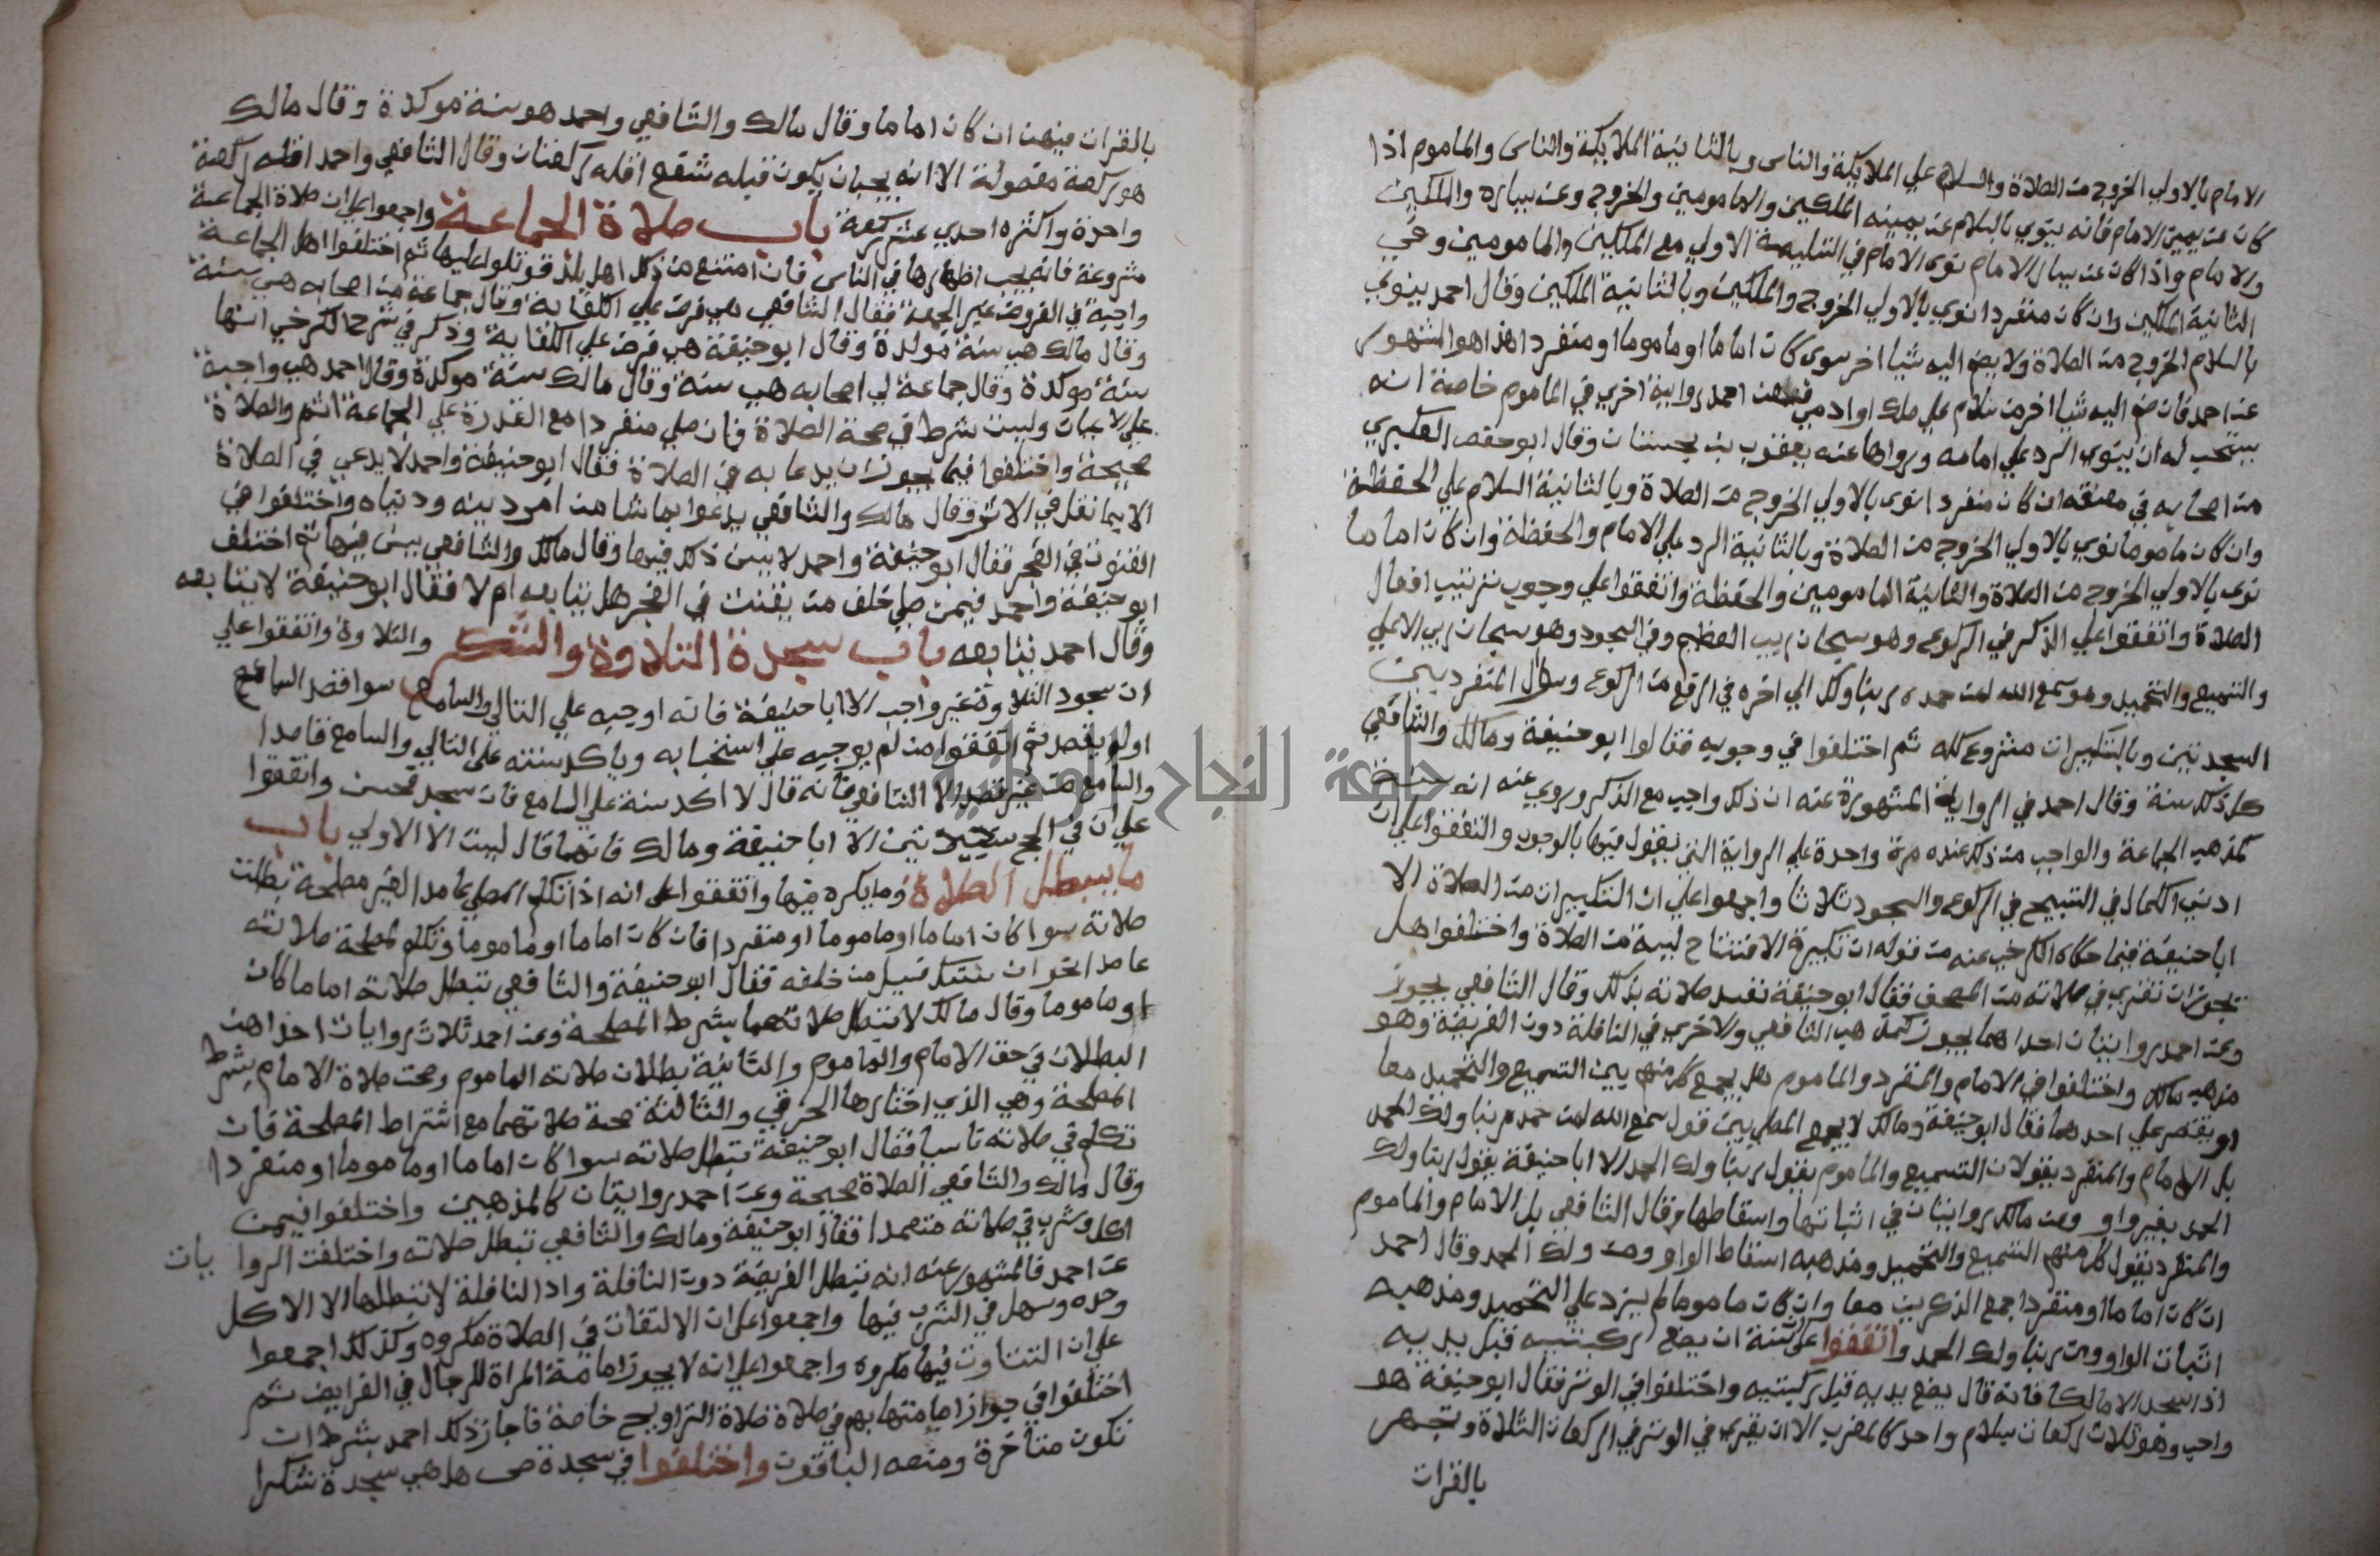 الامام بالاولي الخروج من الصلاة والسلام علي الملايكة والناس وبالثانية الملايكة والناس والماموم اذا
كان عن يمين الامام فانه ينوي بالسلام عن يمينه الملكين والمامومين والخروج وعن يساره والملكين
والامام واذا كان عن يسار الامام نوى الامام في التسليمة الاولي مع الملكين والمامومين وفي
الثانية الملكين وان كان منفردا نوي بالاولي الخروج والملكين وبالثانية الملكين وقال احمد ينوي
بالسلام الخروج من الصلاة ولا يضم اليه شيا اخر سوى كان اماما او ماموما او منفردا هذا هو المشهور
عن احمد فان ضم اليه شيا اخر من سلام علي ملك او ادمي فعن احمد رواية اخري في الماموم خاصة انه
يستحب له ان ينوي الرد علي امامه ورواها عنه يعقوب بن بحسنان وقال ابو حفص العكبري
من اصحابه في مصنفه ان كان منفردا نوى بالاولي الخروج من الصلاة وبالثانية السلام علي الحفظة
وان كان ماموما نوي بالاولي الخروج من الصلاة وبالثانية الرد علي الامام والحفظة وان كان اماما
نوى بالاولي الخروج من الصلاة والثانية المامومين والحفظة واتفقوا علي وجوب ترتيب افعال
الصلاة واتفقوا علي الذكر في الركوع وهو سبحان ربي العظيم وفي السجود وهو سبحان ربي الاعلي
والتسميع والتحميد وهو سمع الله لمن حمده ربنا ولك الي اخره في الرفع من الركوع وسوال المنفرد بين
السجدتين وبالتكبيرات مشروع كله ثم اختلفوا في وجوبه فقالوا ابو حنيفة ومالك والشافعي
كل ذلك سنة وقال احمد في الرواية المشهورة عنه ان ذلك واجب مع الذكر وروي عنه انه سنة
كمذهب الجماعة والواجب من ذلك عنده مرة واحدة علي الرواية التي يقول فيها بالوجوب واتفقوا علي ان
ادني الكمال في التسبيح في الركوع والسجود ثلاثا واجمعوا علي ان التكبيران من الصلاة الا
ابا حنيفة فيما حكاه الكرخي عنه من قوله ان تكبيرة الافتتاح ليسة من الصلاة واختلفوا هل
يجوز ان تقري في صلاته من المصحف فقال ابو حنيفة تفسد صلاته بذلك وقال الشافعي يجوز
وعن احمد روايتان احداهما يجوز كمذهب الشافعي والاخري في النافلة دون الفريضة وهو
مذهب مالك واختلفوا في الامام والمنفرد والماموم هل يجمع كل منهم بين التسميع والتحميد معا
او يقتصر علي احدهما فقال ابو حنيفة ومالك لا يجمع المصلي بين قول سمع الله لمن حمده ربنا ولك الحمد
بل الامام والمنفرد يقولان التسميع والماموم يقول ربنا ولك الحمد الا ابا حنيفة يقول ربنا ولك
الحمد بغير واو وعن مالك روايتان في اثباتها واسقاطها وقال الشافعي بل الامام والماموم
والمنفرد يقول كل منهم التسميع والتحميد ومذهبه اسقاط الواو ومن ولك الحمد وقال احمد
ان كان اماما او منفردا جمع الذكرين معا وان كان ماموما لم يزد علي التحميد ومذهبه
اثبات الواو ومن ربنا ولك الحمد واتفقوا علي سنة ان يضع ركبتيه قبل يديه
اذا سجد الا مالكا فانه قال يضع يديه قبل ركبتيه واختلفوا في الوتر فقال ابو حنيفة هو
واجب وهو ثلاث ركعات بسلام واحد كالمغرب الا ان يقري في الوتر في الركعات الثلاثة وتجهر
بالقران
بالقران فيهن ان كان اماما وقال مالك والشافعي واحمد هو سنة موكدة وقال مالك
هو ركعة مفصولة الا انه يجب ان يكون قبله شفع اقله ركعتان وقال الشافعي واحمد اقله ركعة
واحدة واكثره احدي عشر ركعة باب صلاة الجماعة واجمعوا علي ان صلاة الجماعة
مشروعة فانه يجب اظهارها في الناس فان امتنع من ذلك اهل بلد قوتلوا عليها ثم اختلفوا اهل الجماعة
واجبة في الفروض غير الجمعة فقال الشافعي هي فرض علي الكفاية وقال جماعة من اصحابه هي سنة
وقال مالك هي سنة موكدة وقال ابو حنيفة هي فرض علي الكفاية وذكر في شرح الكرخي انها
سنة موكدة وقال جماعة لي اصحابه هي سنة وقال مالك سنة موكدة وقال احمد هي واجبة
علي الاعيان وليست شرط في صحة الصلاة فان صلي منفردا مع القدرة علي الجماعة اثم والصلاة
صحيحة واختلفوا فيما يجوز ان يدعا به في الصلاة فقال ابو حنيفة واحمد لا يدعي في الصلاة
الا بما نقل في الاثر وقال مالك والشافعي يدعوا بما شا من امر دينه ودنياه واختلفوا في
القنوت في الفجر فقال ابو حنيفة واحمد لا يسن ذلك فيها وقال مالك والشافعي يسن فيها ثم اختلف
ابو حنيفة واحمد فيمن صلي خلف من يقنت في الفجر هل يتابعه ام لا فقال ابو حنيفة لا يتابعه
وقال احمد يتابعه باب سجدة التلاوة والشكر والتلاوة واتفقوا علي
ان سجود التلاوة غير واجب الا ابا حنيفة فانه اوجبه علي التالي والسامع سوا قصد السامع
اولم يقصد ثم اتفقوا من لم يوجبه علي استحبابه وياكد سنته علي التالي والسامع قاصدا
والسامع من غير قصد الا الشافعي فانه قال لا اكد سنة علي السامع فان سجد فحسن واتفقوا
علي ان في الحج سجدتين الا ابا حنيفة ومالك فانهما قال ليست الا الاولي باب
ما يبطل الصلاة وما يكره فيها واتفقوا علي انه اذا تكلم المصلي عامدا لغير مصلحة بطلت
صلاته سوا كان اماما او ماموما او منفردا فان كان اماما او ماموما وتكلم لمصلحة صلاته
عامدا فقال ابو حنيفة والشافعي تبطل صلاته اماما كان
او ماموما وقال مالك لا تبطل صلاتهما بشرط المصلحة وعن احمد ثلاث روايات احداهن
البطلان في حق الامام والماموم والثانية بطلان صلاته الماموم وصحت صلاة الامام بشرط
المصلحة وهي الذي اختارها الخرقي والثالثة صحة صلاتهما مع اشتراط المصلحة فان
تكلم في صلاته ناسيا فقال ابو حنيفة تبطل صلاته سوا كان اماما او ماموما او منفردا
وقال مالك والشافعي الصلاة صحيحة وعن احمد روايتان كالمذهبين واختلفوا فيمن
اكل وشرب في صلاته متعمدا فقال ابو حنيفة ومالك والشافعي تبطل صلاته واختلفت الروايات
عن احمد فالمشهور عنه انه تبطل الفريضة دون النافلة واذ النافلة لا تبطلها الا الاكل
وحده وسهل في الشرب فيها واجمعوا علي ان الالتفات في الصلاة مكروه وكذلك اجمعوا
علي ان التثاوب فيها مكروه واجمعوا علي انه لا يجوز امامة المراة للرجال في الفرايض ثم
اختلفوا في جواز امامتها بهم في صلاة صلاة التراويح خاصة فاجاز ذلك احمد بشرط ان
تكون متأخرة ومنعه الباقون واختلفوا في سجدة ص هل هي سجدة شكرا
جامعة النجاح الوطنية